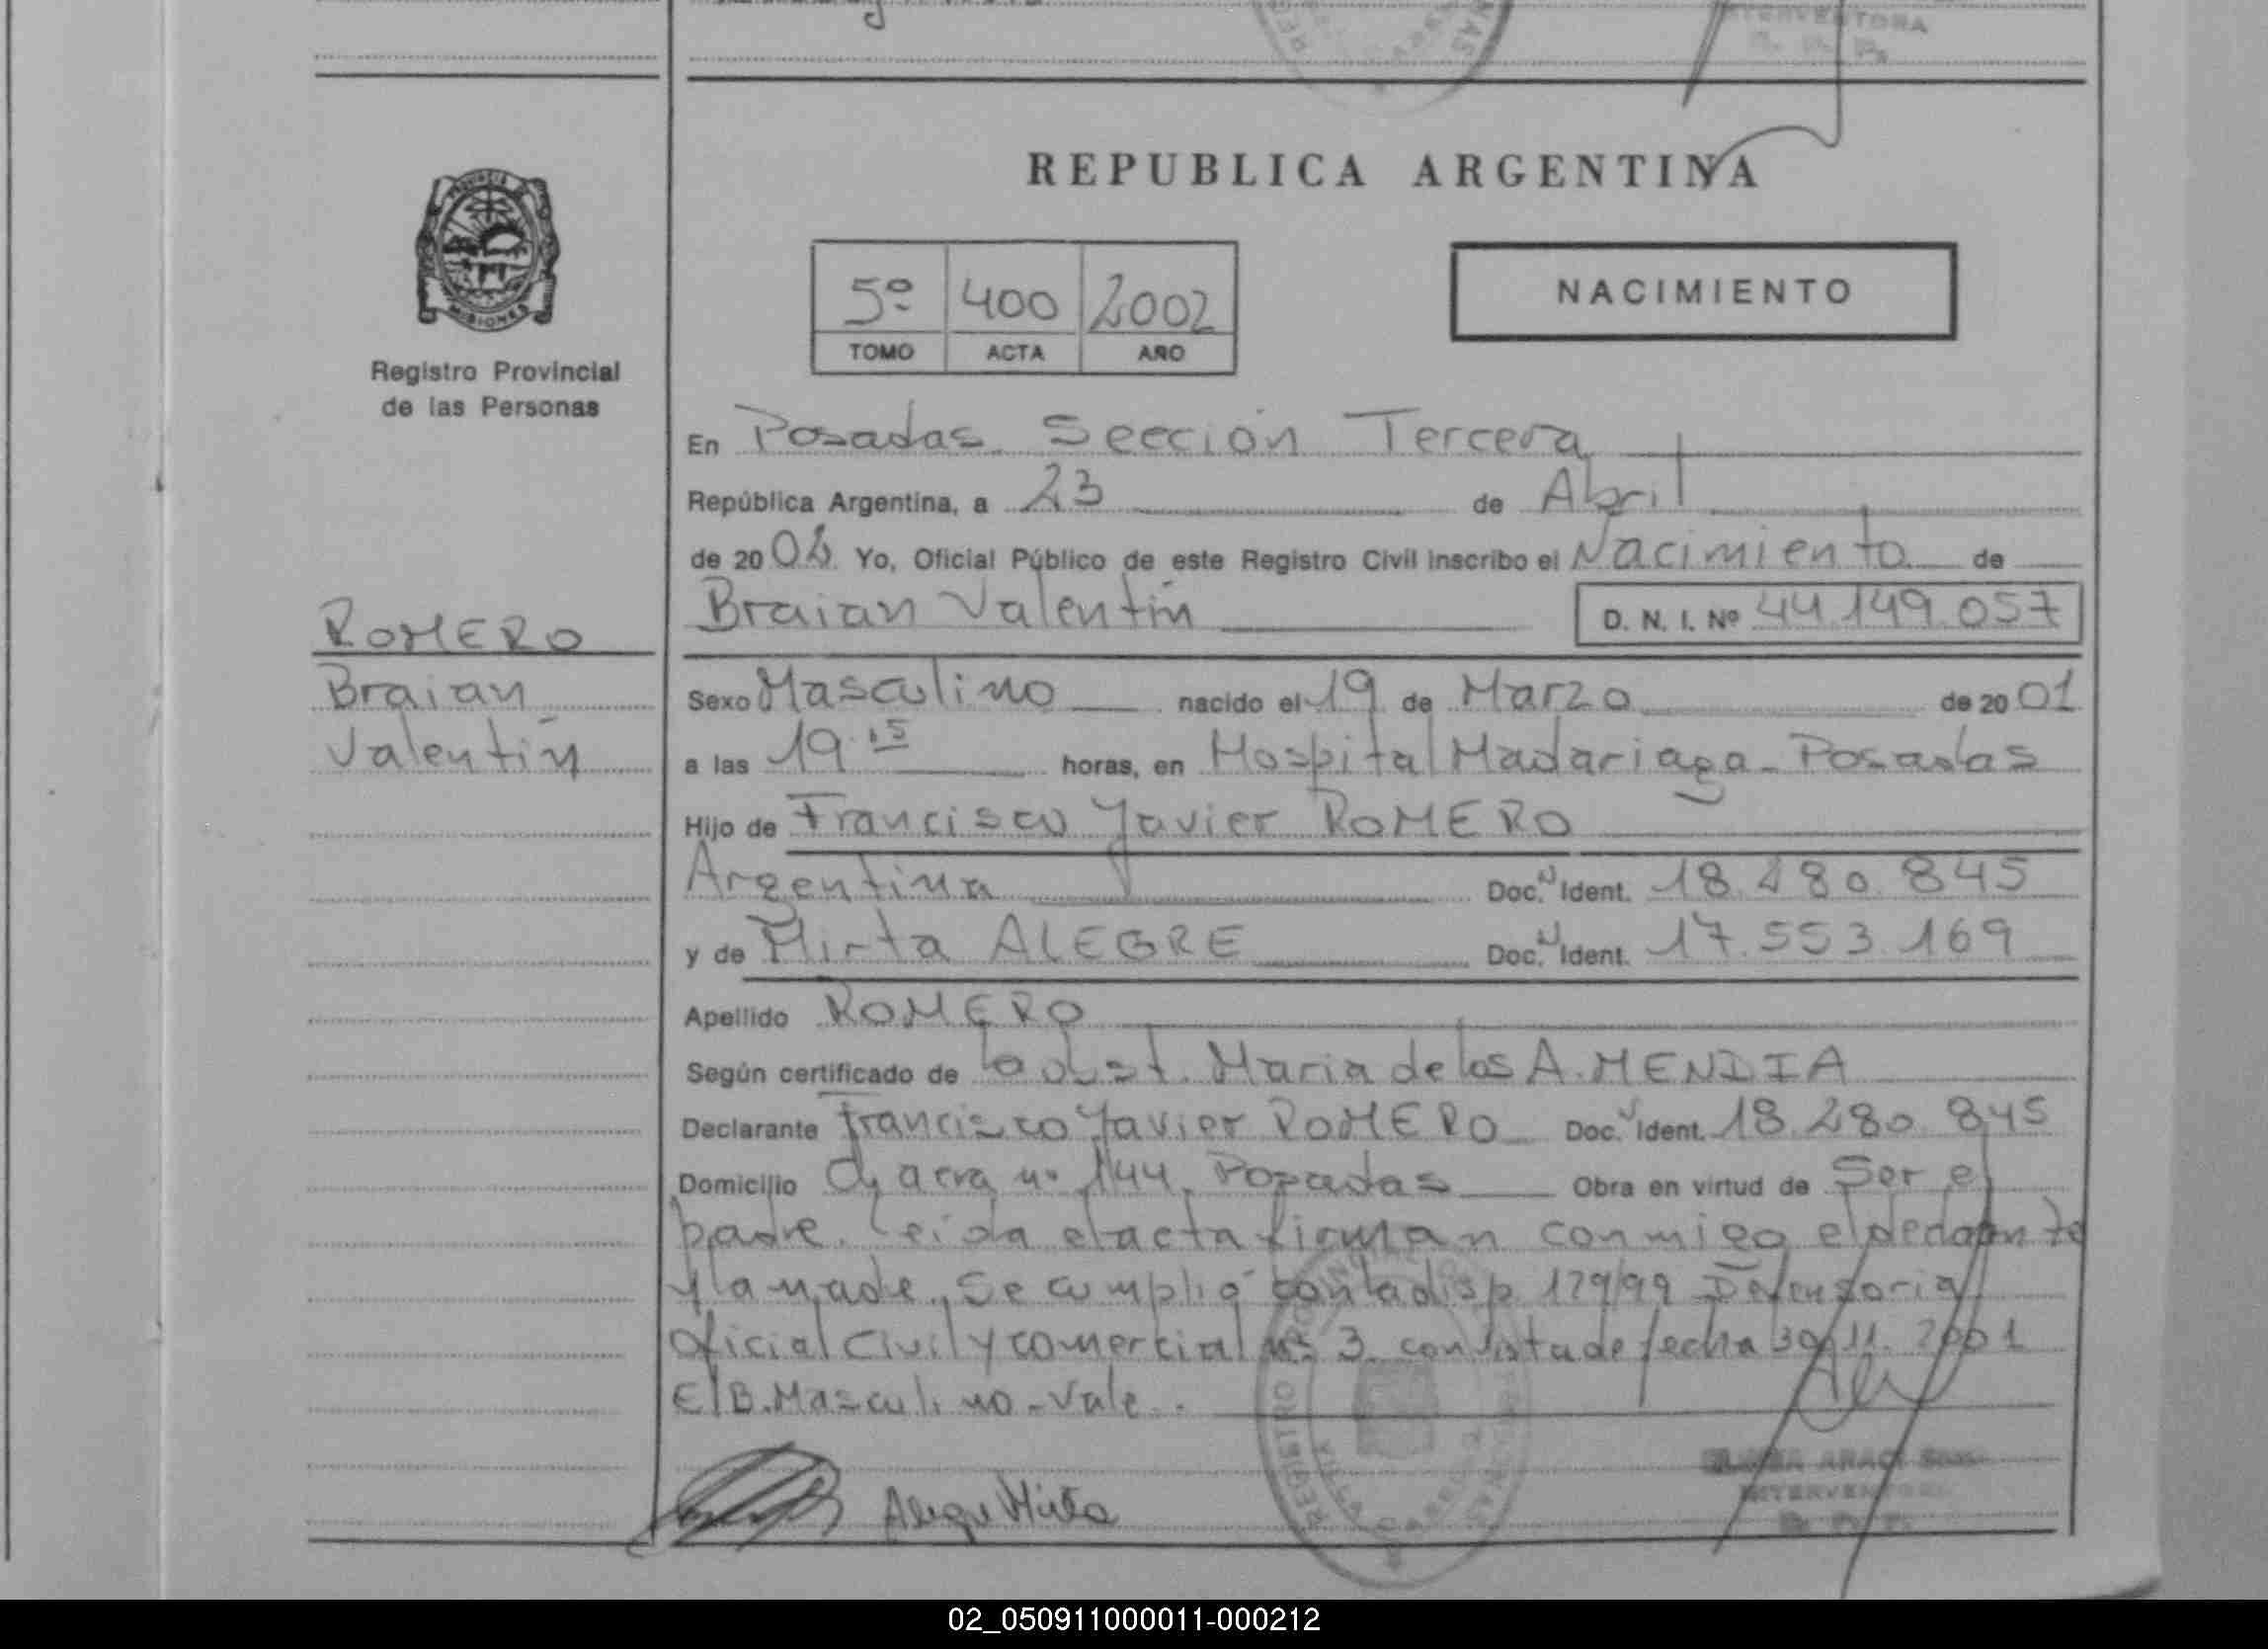 INTERVENTORA
REPUBLICA ARGENTINA
PROVINCIA
MISIONES
Registro Provincial
de las Personas
5º 400 2002
TOMO ACTA AÑO
NACIMIENTO
En Posadas Sección Tercera
República Argentina, a 23 de Abril
de 20 02 Yo, Oficial Público de este Registro Civil inscribo el Nacimiento de
Braian Valentín D. N. I. Nº 44.149.057
ROMERO
Braian
Valentín
Sexo Masculino nacido el 19 de Marzo de 20 01
a las 19.15 horas, en Hospital Madariaga - Posadas
Hijo de Francisco Javier ROMERO
Argentina Doc. Ident. 18.280.845
y de Mirta ALEGRE Doc. Ident. 17.553.169
Apellido ROMERO
Según certificado de la obst. Maria de los A. MENDIA
Declarante Francisco Javier ROMERO Doc. Ident. 18.280.845
Domicilio Chacra nº 144, Posadas Obra en virtud de Ser el
padre. Leida el acta firman conmigo el
y la madre. Se cumplió con la disp. 129/99 Defensoria
Oficial Civil y comercial nº 3 con vista de fecha 30.11.2001
E/B. Masculino - Vale.
Alegre Mirta
REGISTRO
02_050911000011-000212